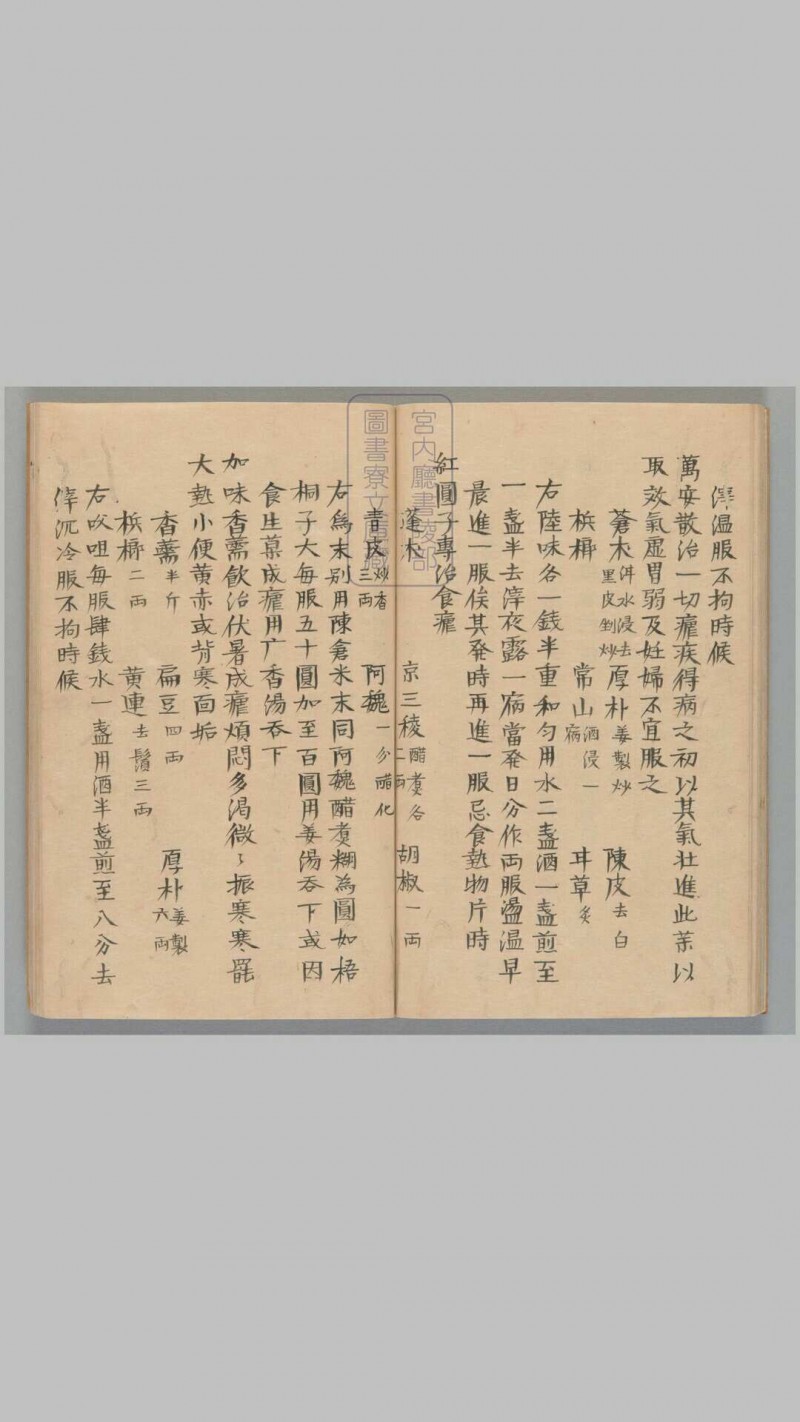 滓温服不拘時候
萬安散治一切瘧疾得病之初以其氣壯進此茱以
取效氣虛胃弱及妊婦不宜服之
蒼木泔水浸去黑皮剉炒 厚朴姜製炒 陳皮去白
梹榔 常山酒浸一宿 耳草炙
右陸味各一錢半重和匀用水二盞酒一盞煎至
一盞半去滓夜露一宿當發日分作兩服盪温早
晨進一服俟其發時再進一服忌食熱物片時
紅圓子專治食瘧
蓬朮 京三稜醋煑各二兩 胡椒一兩
青皮炒香三兩 阿魏一分醋化
右為末別用陳倉米末同阿魏醋煑糊為圓如梧
桐子大每服五十圓加至百圓用姜湯吞下或因
食生菓成瘧用广香湯吞下
加味香薷飲治伏暑成瘧煩悶多渴微〻振寒寒罷
大熱小便黄赤或背寒面垢
香薷半斤 扁豆四兩 厚朴姜製六兩
梹榔二兩 黄連去鬚三兩
右㕮咀每服肆錢水一盞用酒半盞煎至八分去
滓沉冷服不拘時候
宮内廳書陵部
圖書寮文庫